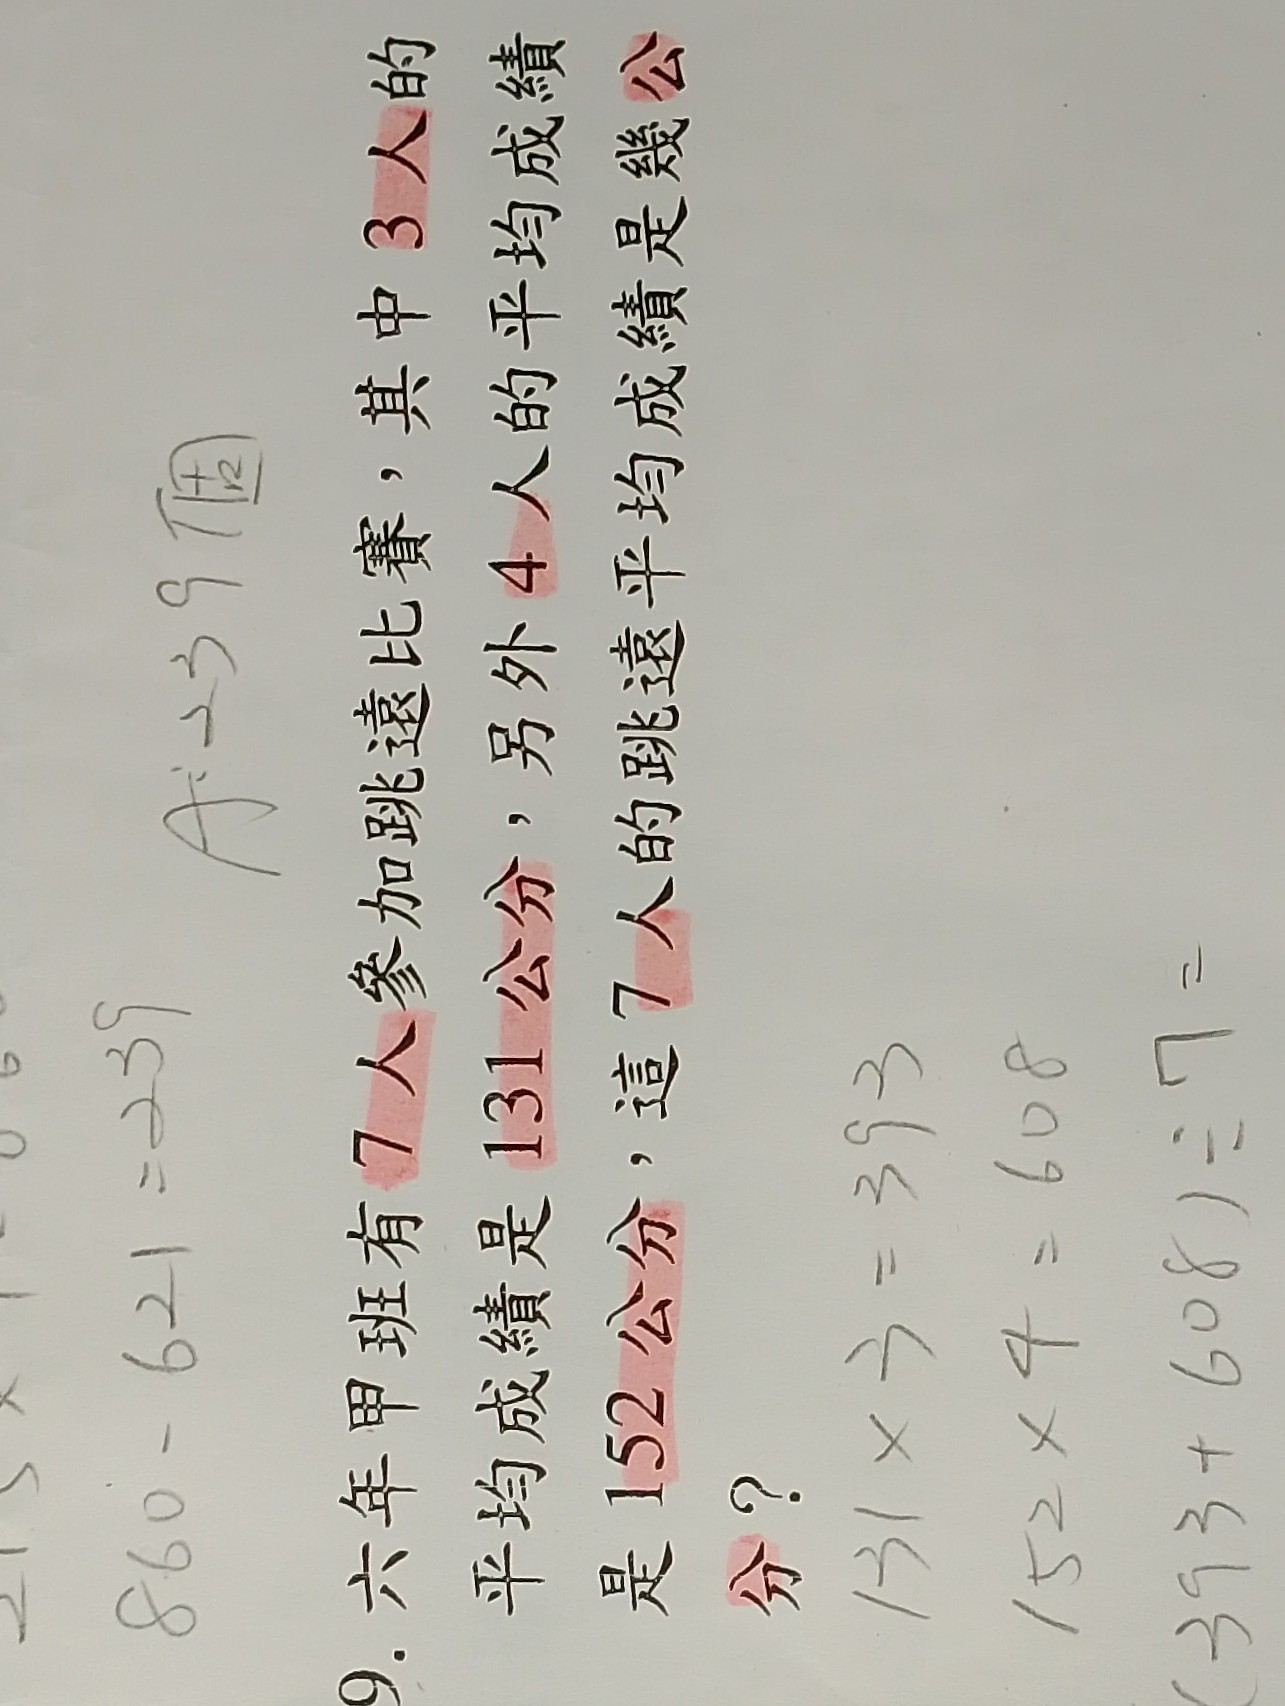 860-621=239
A:239個
9.六年甲班有7人參加跳遠比賽，其中3人的
平均成績是131公分，另外4人的平均成績
是152公分，這7人的跳遠平均成績是幾公
分？
131×3=393
152×4=608
(393+608)÷7=